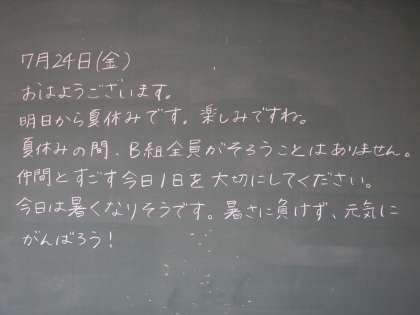 7月24日(金)
おはようございます。
明日から夏休みです。楽しみですね。
夏休みの間、B組全員がそろうことはありません。
仲間とすごす今日1日を大切にしてください。
今日は暑くなりそうです。暑さに負けず、元気に
がんばろう!